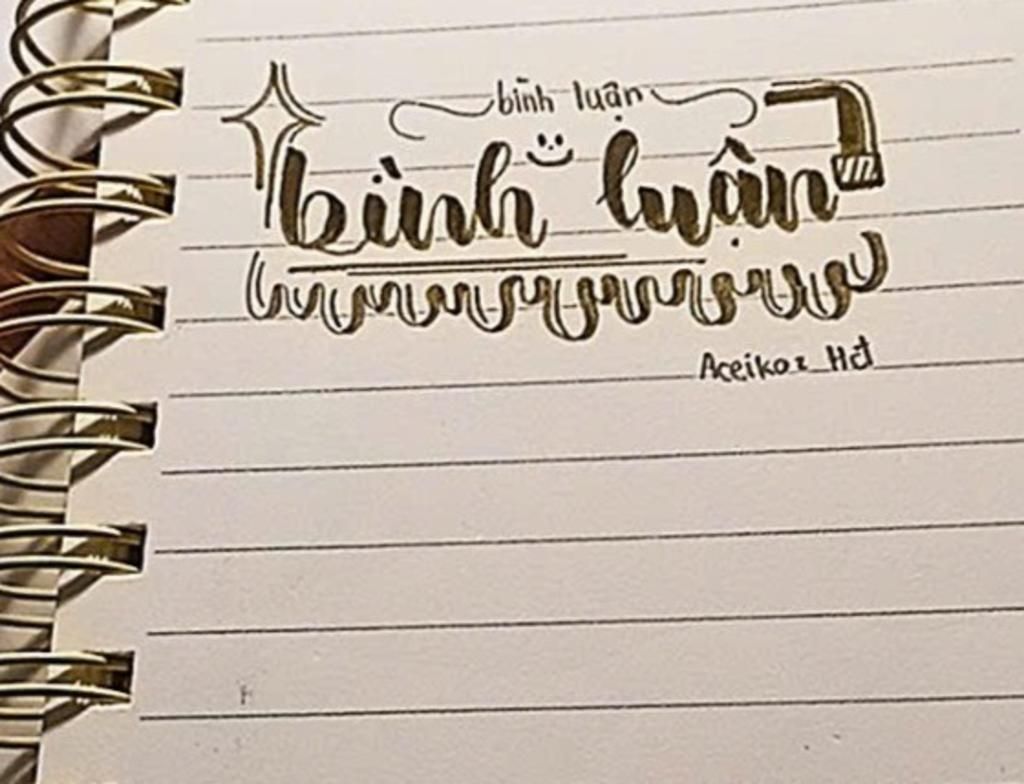 bình luận
bình luận
Aceikoz Hđ